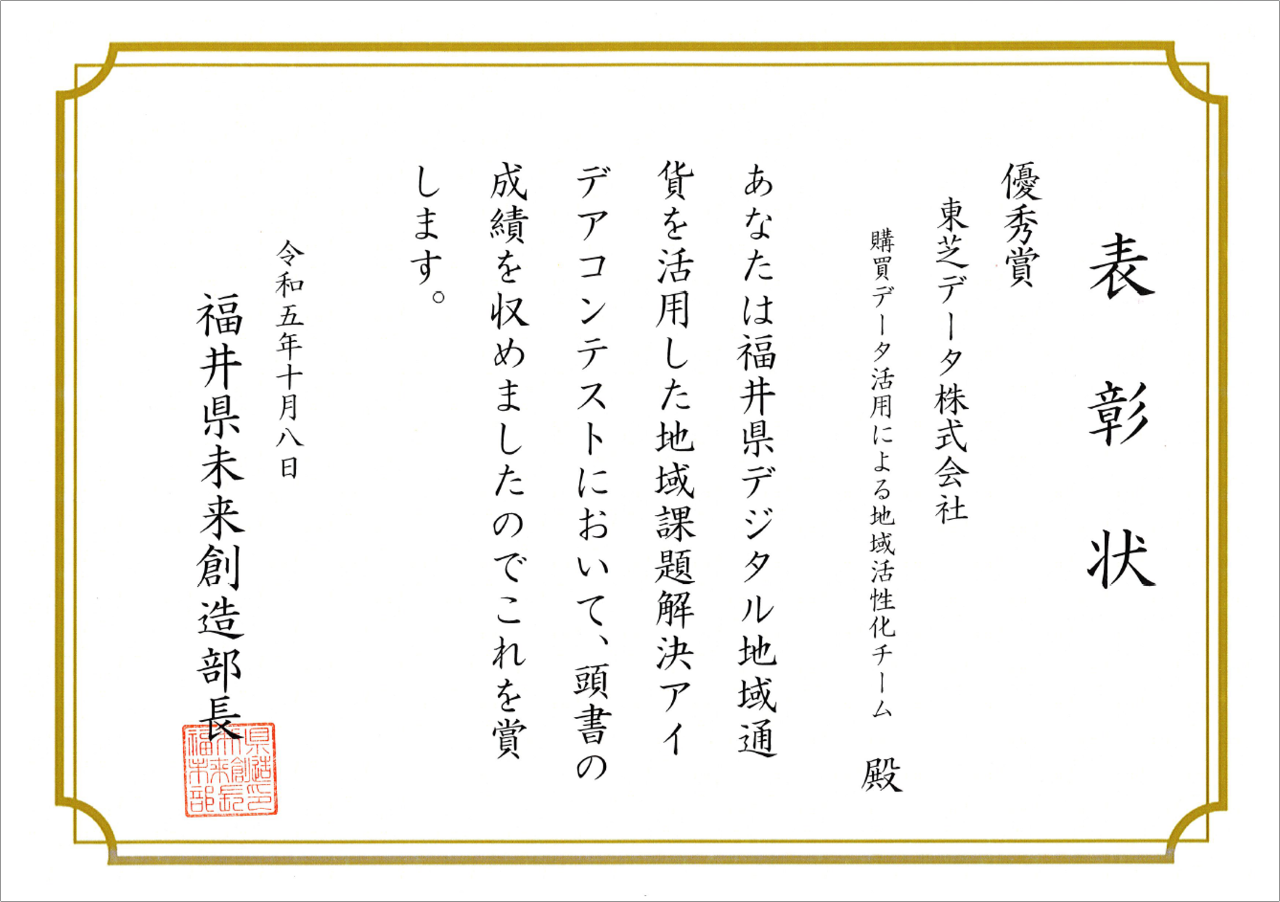 表彰状
優秀賞
東芝データ株式会社
購買データ活用による地域活性化チーム 殿
あなたは福井県デジタル地域通
貨を活用した地域課題解決アイ
デアコンテストにおいて、頭書の
成績を収めましたのでこれを賞
します。
令和五年十月八日
福井県未来創造部長